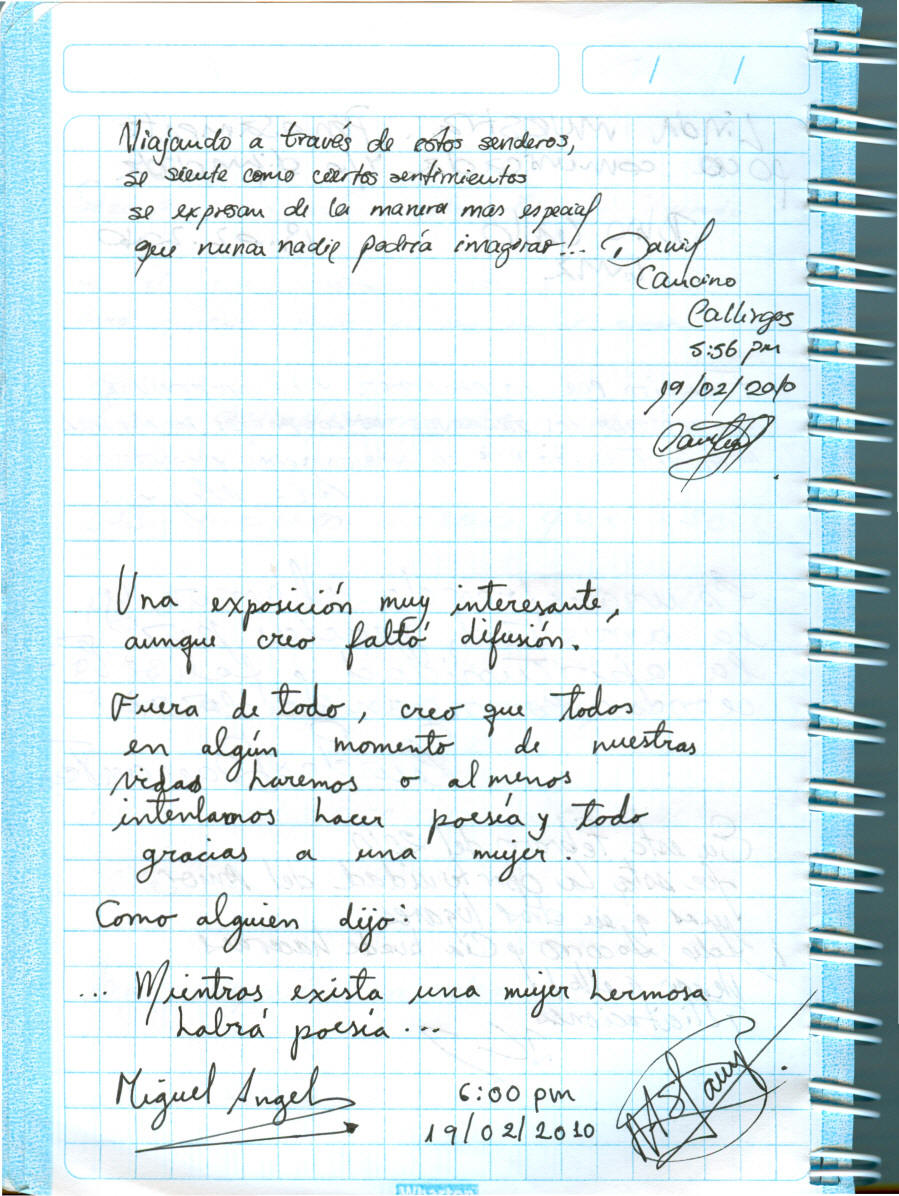 / /
Viajando a través de estos senderos,
se siente como ciertos sentimientos
se expresan de la manera mas especial
que nunca nadie podría imaginar!...
Daniel
Cancino
Callirgos
5:56 pm
19/02/2010
Una exposición muy interesante,
aunque creo faltó difusión.
Fuera de todo, creo que todos
en algún momento de nuestras
vidas haremos o al menos
intentamos hacer poesía y todo
gracias a una mujer.
Como alguien dijo:
... Mientras exista una mujer hermosa
habrá poesía...
Miguel Angel
6:00 pm
19/02/2010